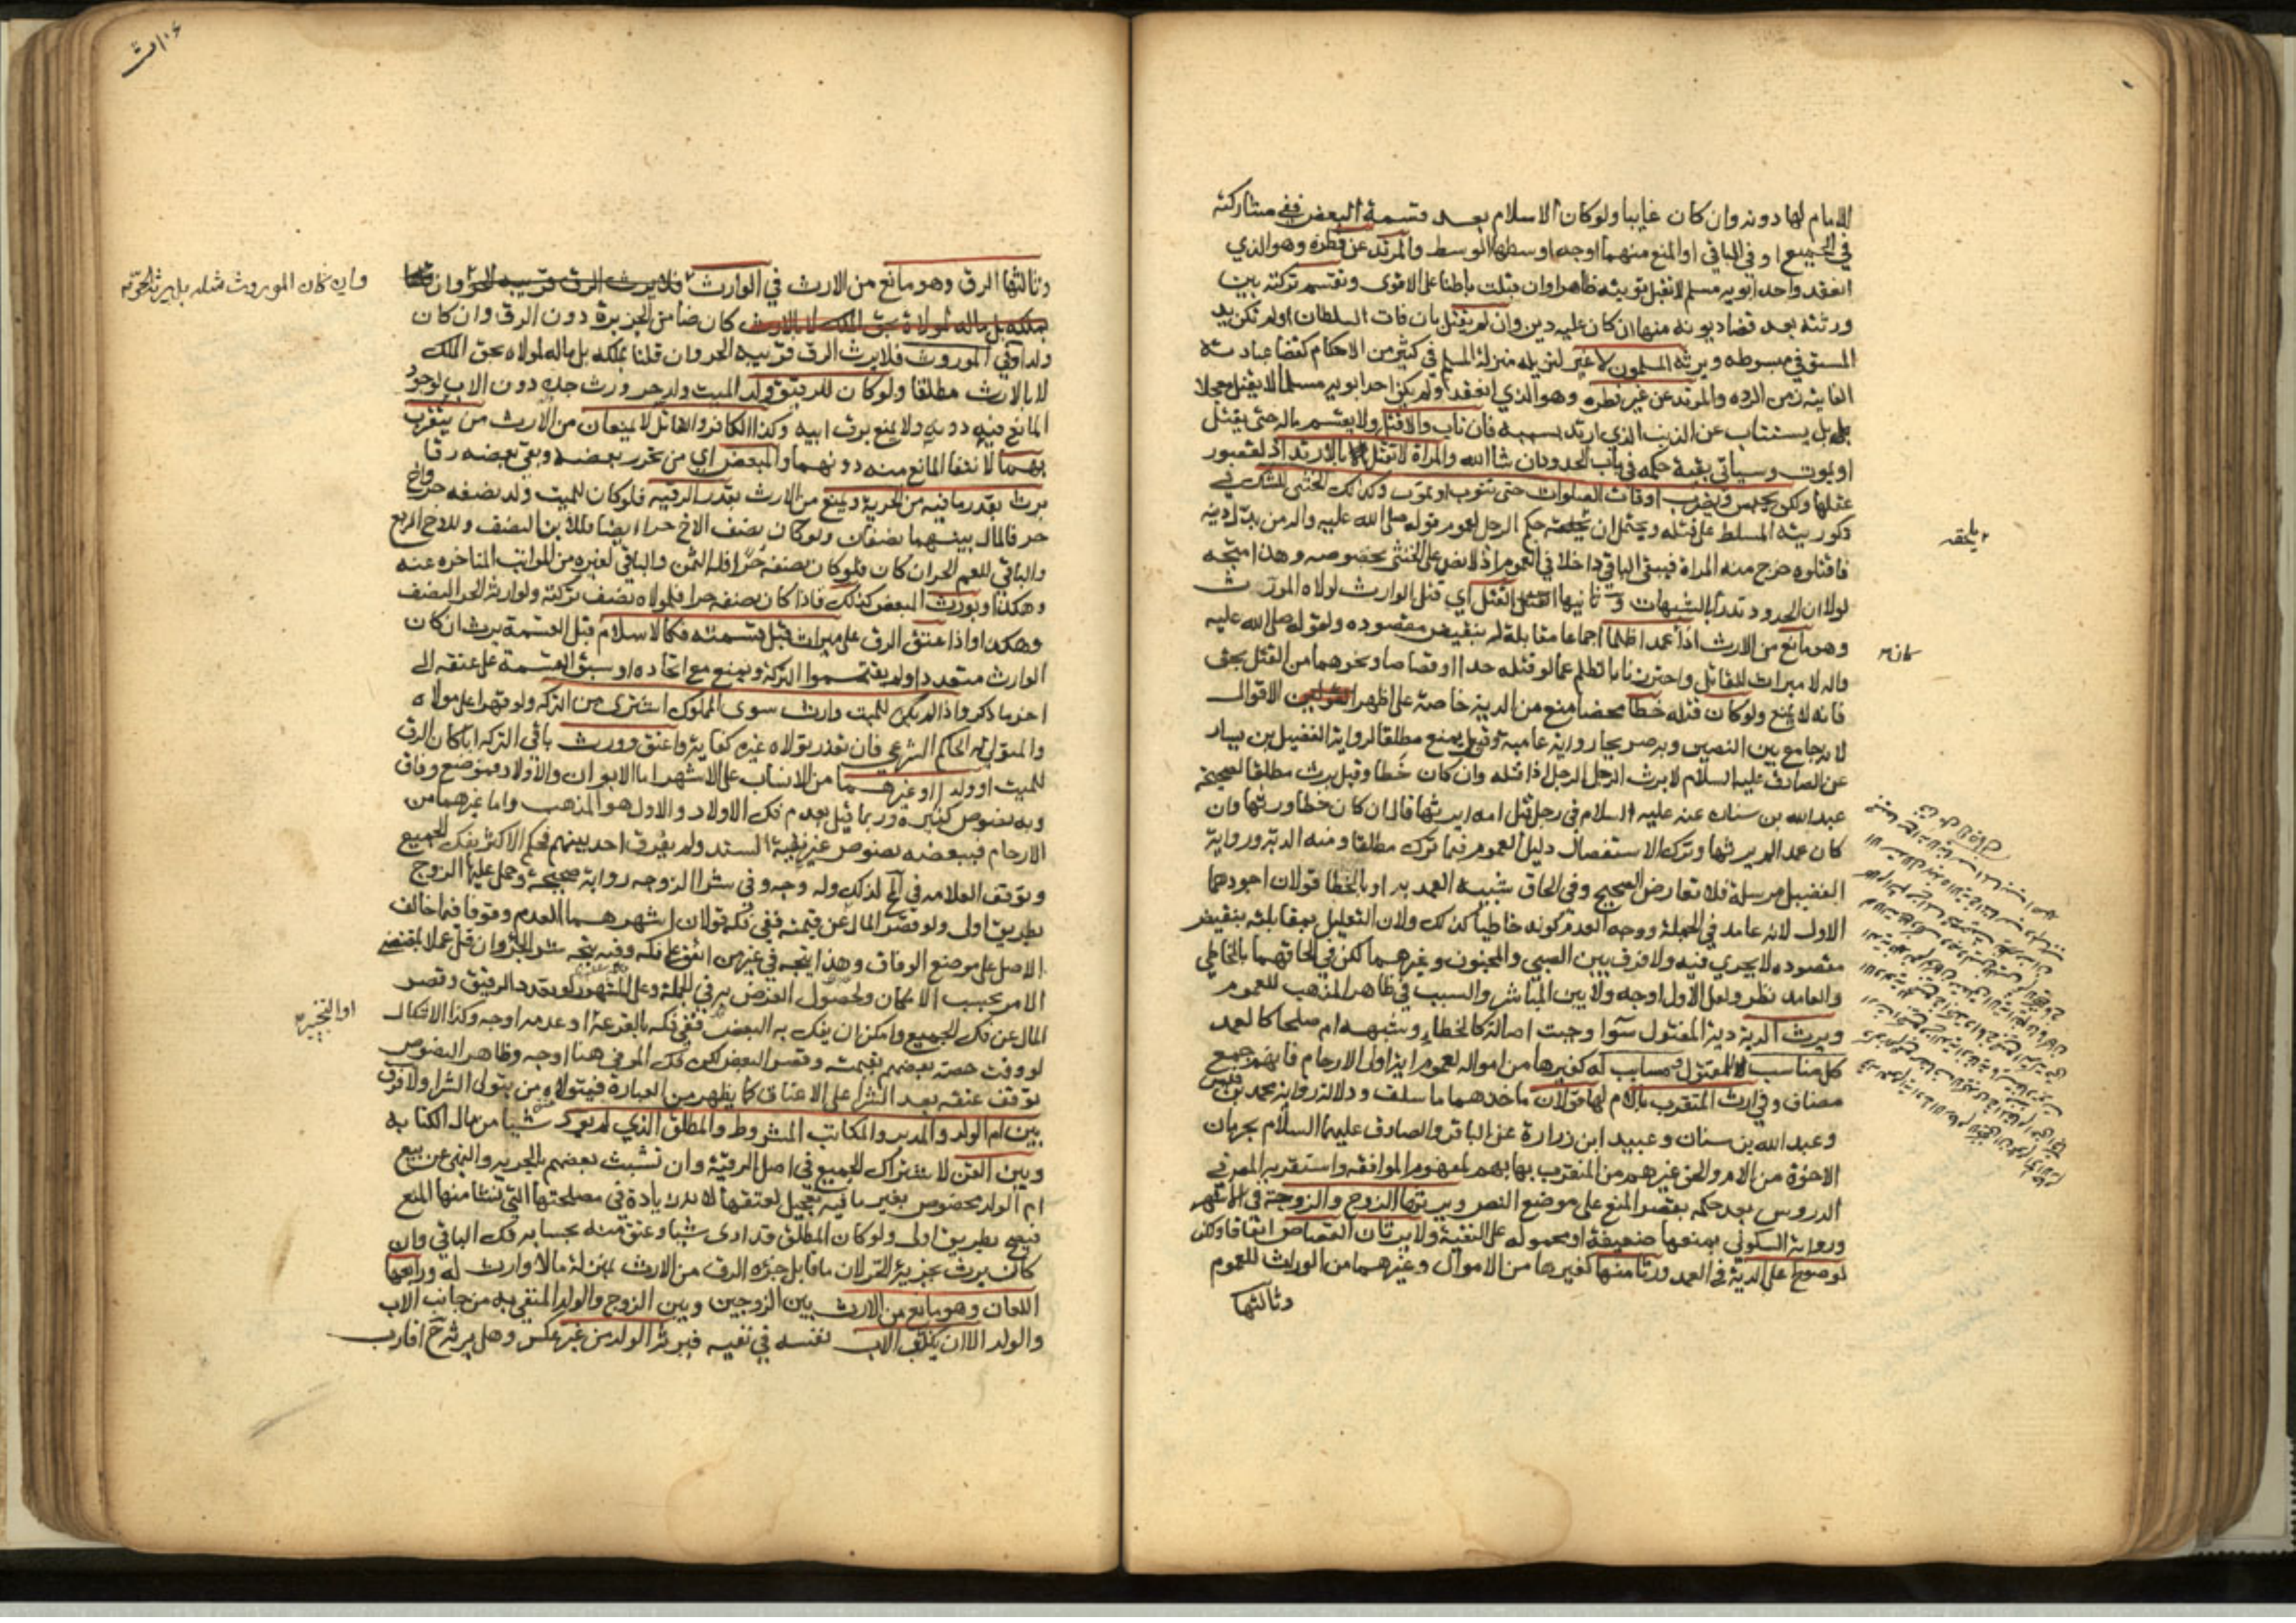 الامام لها دونه وان كان غايبا ولو كان الاسلام بعد قسمة البعض ففي مشاركته
في الجميع او في الباقي او المنع منهما اوجه اوسطها الوسط والمرتد عن فطرة وهو الذي
انعقد واحد ابويه مسلم لا تقبل توبته ظاهرا وان قبلت باطنا على الاقوى وتقسم تركته بين
ورثته بعد قضاء ديونه منها ان كان عليه دين وان لم يقتل بان فات السلطان او لم تكن يد
المستوفي مبسوطه ويرثه المسلمون لا غير لتنزيله منزلة المسلم في كثير من الاحكام كقضا عبادته
الفايتة زمن الرده والمرتد عن غير فطره وهو الذي انعقد ولم يكن احد ابويه مسلما لا يقتل معجلا
بل يستتاب عن الذنب الذي ارتد بسببه فان تاب والا قتل ولا يقسم ماله حتى يقتل
او يموت وسياتي بقية حكمه في باب الحدود ان شا الله والمراة لا تقتل بالارتداد لقصور
عقلها ولكن تحبس وتضرب اوقات الصلوات حتى تتوب او تموت وكذلك الخنثى للشك في
ذكوريته المسلط على قتله ويحتمل ان حكم الرجل لعموم قوله صلى الله عليه واله من بدل دينه
فاقتلوه خرج منه المراة فيبقى الباقي داخلا في العموم اذ لا نص على الخنثى بخصوصه وهذا متجه
لولا ان الحدود تدرأ بالشبهات و ثانيها القتل اي قتل الوارث لولاه المورث
وهو مانع من الارث اذا عمدا ظلما اجماعا مقابلة له بنقيض مقصوده ولقوله صلى الله عليه
واله لا ميراث للقاتل واحترزنا بالظلم عما لو قتله حدا او قصاصا ونحوهما من القتل بحق
فانه لا يمنع ولو كان قتله خطأ محضا منع من الدية خاصة على اظهر الاقوال
لانه جامع بين النصين وبه صريحا رواية عامية وقيل يمنع مطلقا لرواية الفضيل بن يسار
عن الصادق عليه السلام لا يرث الرجل الرجل اذا قتله وان كان خطأ وقيل يرث مطلقا لصحيحة
عبد الله بن سنان عنه عليه السلام في رجل قتل امه ايرثها قال ان كان خطأ ورثها وان
كان عمدا لم يرثها وترك الاستفصال دليل العموم فيما ترك مطلقا ومنه الدية ورواية
الفضيل مرسلة فلا تعارض الصحيح وفي الحاق شبيه العمد به او بالخطا قولان اجودهما
الاول لانه عامد في الجملة ووجه العدم كونه خاطئا كذلك ولان التعليل بمقابلته بنقيض
مقصوده لا يجري فيه ولا فرق بين الصبي والمجنون وغيرهما لكن في الحاقهما بالخاطي
والعامد نظر ولعل الاول اوجه ولا بين المباشر والسبب في ظاهر المذهب للعموم
ويرث الدية دية المقتول سوآ وجبت اصالة كالخطاء وشبهه ام صلحا كالعمد
كل مناسب للمقتول ومسابب له كغيرها من امواله لعموم اية اولي الارحام فانهم جمع
مضاف وفي ارث المتقرب بالام لها قولان ماخذهما ما سلف ودلالة رواية محمد بن قيس
وعبد الله بن سنان وعبيد ابن زرارة عن الباقر والصادق عليهما السلام بحرمان
الاخوة من الام والحق غيرهم من المتقرب بها بهم لمفهوم الموافقه واستقربه المص في
الدروس بعد حكمه بقصر المنع على موضع النص ويرثها الزوج والزوجة في الاشهر
ورواية السكوني بمنعهما ضعيفة او محمولة على التقية ولا يرثان القصاص اتفاقا ولكن
لو صولح على الدية في العمد ورثا منها كغيرها من الاموال وغيرهما من الوراث للعموم
وثالثها
يلحقه
كان
وثالثها الرق وهو مانع من الارث في الوارث فلا يرث الرق قريبه الحر وان قلنا
بملكه بل ماله لمولاه بحق الملك لا بالارث كان ضامن الجريرة دون الرق وان كان
ولدا وفي الموروث فلا يرث الرق قريبه الحر وان قلنا بملكه بل ماله لمولاه بحق الملك
لا بالارث مطلقا ولو كان للرقيق ولد الميت ولد حر ورث جده دون الاب لوجود
المانع فيه دونه ولا يمنع برق ابيه وكذا الكافر والقاتل لا يمنعان من الارث من يتقرب
بهما لانتفا المانع منه دونهما والمبعض اي من تحرر بعضه وبقي بعضه رقا
يرث بقدر ما فيه من الحرية ويمنع من الارث بقدر الرقيه فلو كان للميت ولد نصفه حر واخ
حر فالمال بينهما نصفان ولو كان نصف الاخ حرا ايضا فللابن النصف وللاخ الربع
والباقي للعم الحر ان كان فلو كان نصفه حرا فله الثمن والباقي لغيره من المراتب المتاخره عنه
وهكذا ويورث المبعض كذلك فاذا كان نصفه حرا فلمولاه نصف تركته ولوارثه الحر النصف
وهكذا واذا عتق الرق على ميراث قبل قسمته فكالاسلام قبل القسمة يرث ان كان
الوارث متعددا ولم يقتسموا التركة ويمنع مع اتحاده او سبق القسمة على عتقه الى
اخر ما ذكر واذا لم يكن للميت وارث سوى المملوك اشترى من التركه ولو قهرا على مولاه
والمتولي له الحاكم الشرعي فان تعذر تولاه غيره كفاية واعتق وورث باقي التركه ابا كان الرق
للميت او ولدا او غيرهما من الانساب على الاشهر اما الابوان والاولاد فموضع وفاق
وبه نصوص كثيره وربما قيل بعدم فك الاولاد والاول هو المذهب واما غيرهما من
الارحام فببعضه نصوص غير نقية السند ولم يفرق احد بينهم فحكم الاكثر بفك الجميع
وتوقف العلامه في لذلك وله وجه وفي شرا الزوجه رواية صحيحة وحمل عليها الزوج
بطريق اولى ولو قصر المال عن قيمته ففي فكه قولان اشهرهما العدم وقوفا فيما خالف
الاصل على موضع الوفاق وهذا يتجه في غير من اتفق على فكه وفيه يتجه شرا الجزء وان قل عملا بمقتضى
الامر بحسب الامكان ولحصول الغرض به في الجملة وعلى المشهور لو تعدد الرقيق وقصر
المال عن فك الجميع وامكن ان يفك به البعض ففي فكه بالقرعة او عدمه اوجه وكذا الاشكال
لو وفت حصة بعضهم بقيمته وقصر البعض لكن فك الموفي هنا اوجه وظاهر النصوص
توقف عتقه بعد الشرا على الاعتاق كما يظهر من العبارة فيتولاه من يتولى الشرا ولا فرق
بين ام الولد والمدبر والمكاتب المشروط والمطلق الذي لم يود شيئا من مال الكتابه
وبين القن لاشتراك الجميع في اصل الرقية وان تشبث بعضهم بالحريه والنهي عن بيع
ام الولد مخصوص بغير ما فيه تعجيل لعتقها لانه زيادة في مصلحتها التي نشا منها المنع
فيصح بطريق اولى ولو كان المطلق قد ادى شيئا وعتق منه بحسابه فك الباقي وان
كان يرث بجزئه الحر لان ما قابل جزؤه الرق من الارث بمنزلة ما لا وارث له ورابعها
اللعان وهو مانع من الارث بين الزوجين وبين الزوج والولد المنفي به من جانب الاب
والولد الا ان يكذب الاب نفسه في نفيه فيرثه الولد من غير عكس وهل يرثه ح اقارب
وان كان الموروث مثله بل يرثه الحر
او التخيير